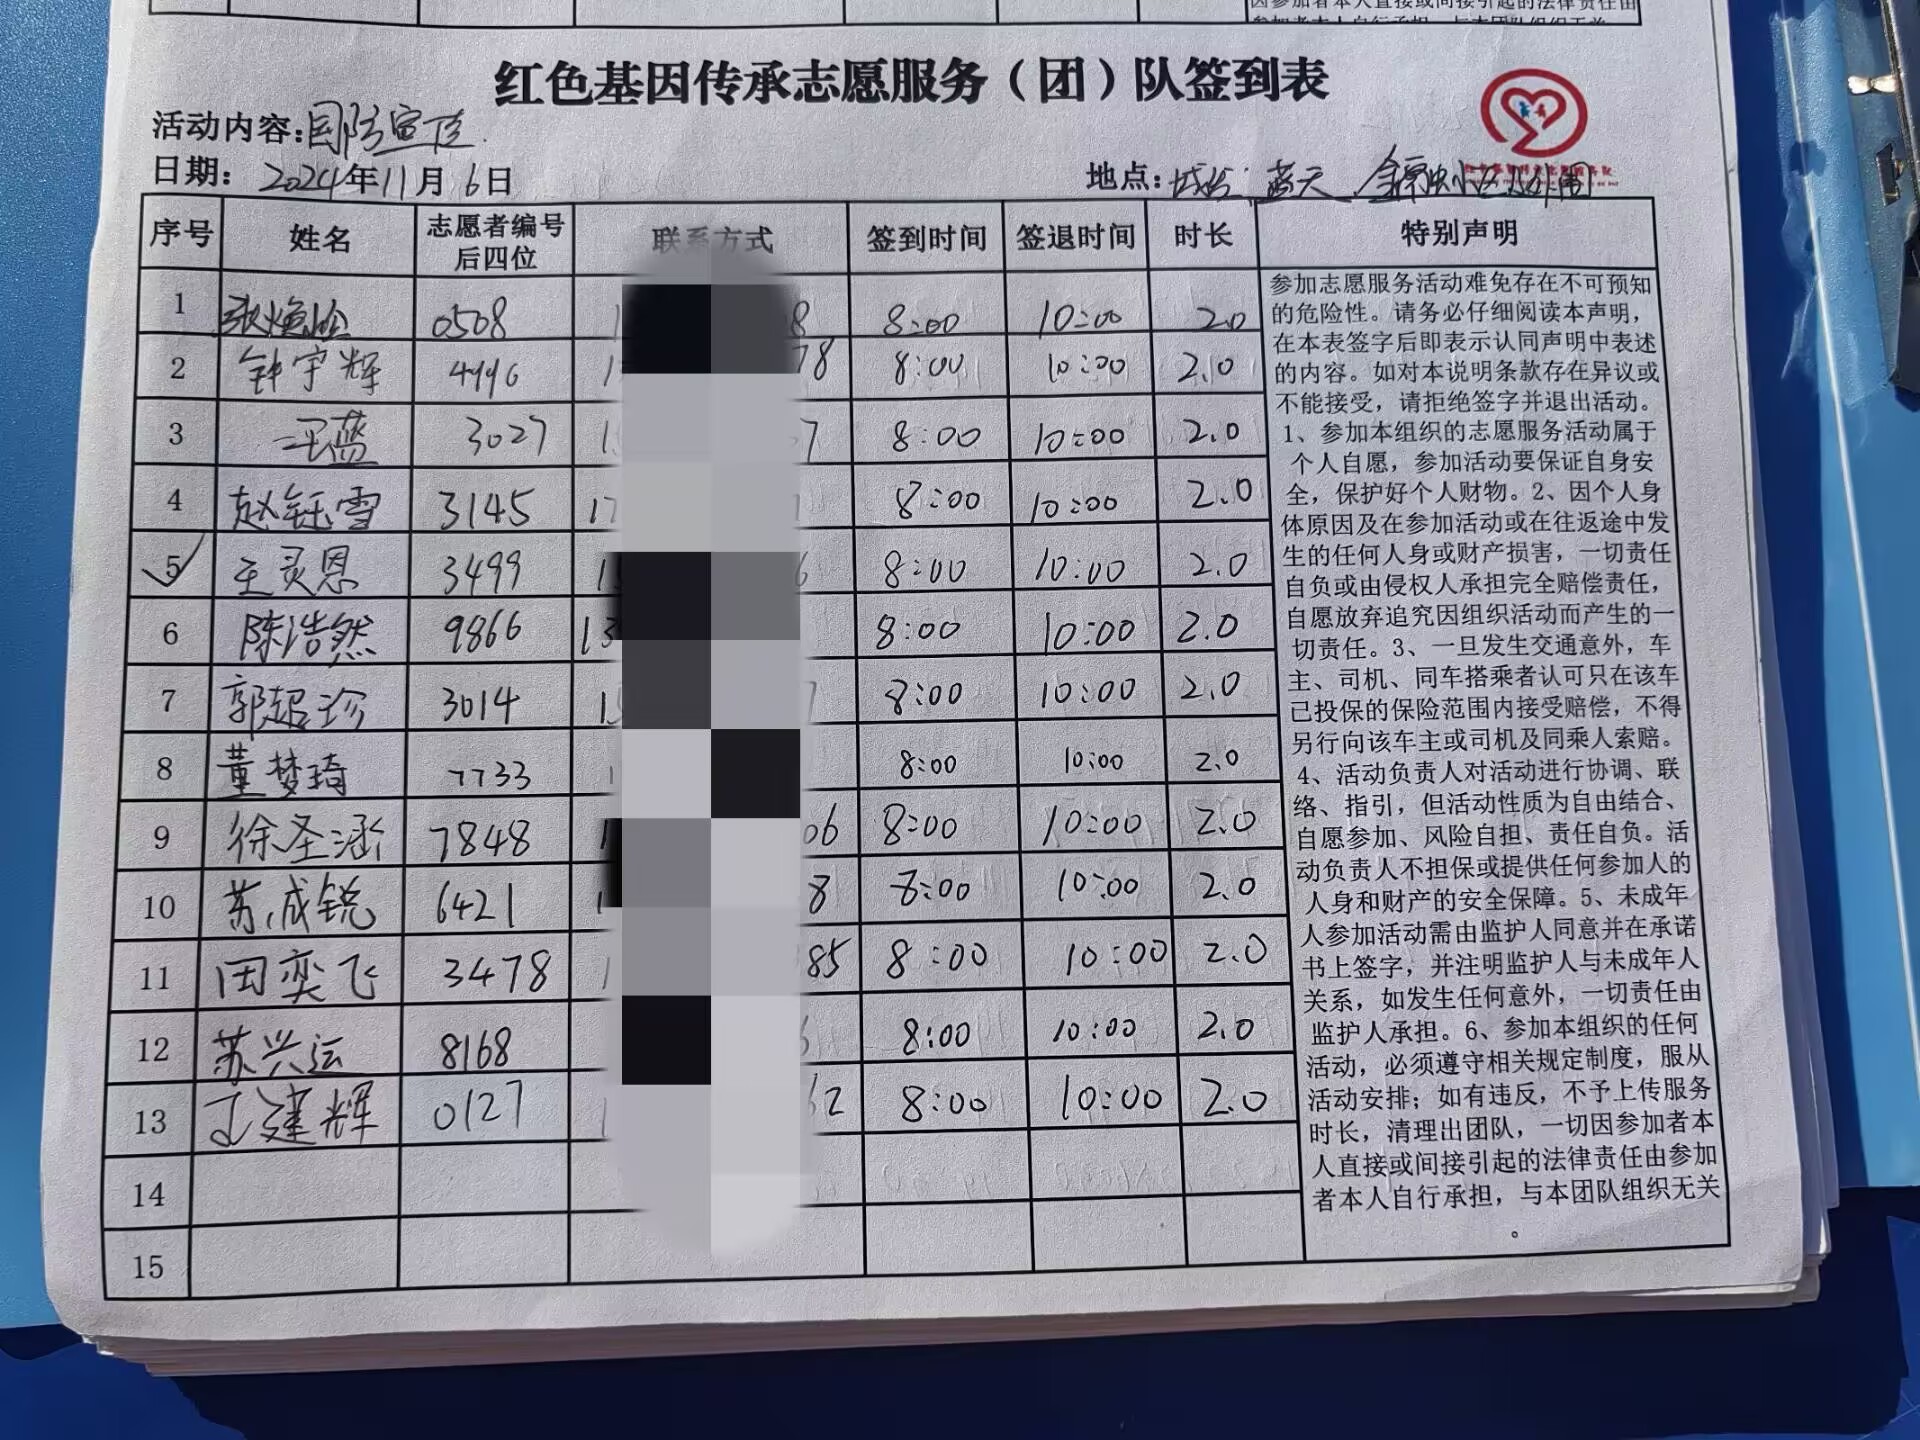 因参加者本人直接或间接引起的法律责任由
参加者本人自行承担，与本团队组织无关
红色基因传承志愿服务（团）队签到表
活动内容：国防宣传
日期：2024年11月6日
地点：蓝天 金融小区
序号 姓名 志愿者编号后四位 联系方式 签到时间 签退时间 时长 特别声明
1 0508 1 8 8:00 10:00 2.0
2 钟宇辉 4996 1 78 8:00 10:00 2.0
3 王蓝 3027 1 7 8:00 10:00 2.0
4 赵钰雪 3145 17 8:00 10:00 2.0
5 王灵恩 3499 1 6 8:00 10:00 2.0
6 陈浩然 9866 13 8:00 10:00 2.0
7 郭超珍 3014 1 8:00 10:00 2.0
8 董梦琦 7733 1 8:00 10:00 2.0
9 徐圣涵 7848 1 06 8:00 10:00 2.0
10 苏成锐 6421 1 8 8:00 10:00 2.0
11 田奕飞 3478 1 85 8:00 10:00 2.0
12 苏兴运 8168 8:00 10:00 2.0
13 建辉 0127 1 62 8:00 10:00 2.0
14
15
参加志愿服务活动难免存在不可预知
的危险性。请务必仔细阅读本声明，
在本表签字后即表示认同声明中表述
的内容。如对本说明条款存在异议或
不能接受，请拒绝签字并退出活动。
1、参加本组织的志愿服务活动属于
个人自愿，参加活动要保证自身安
全，保护好个人财物。2、因个人身
体原因及在参加活动或在往返途中发
生的任何人身或财产损害，一切责任
自负或由侵权人承担完全赔偿责任，
自愿放弃追究因组织活动而产生的一
切责任。3、一旦发生交通意外，车
主、司机、同车搭乘者认可只在该车
已投保的保险范围内接受赔偿，不得
另行向该车主或司机及同乘人索赔。
4、活动负责人对活动进行协调、联
络、指引，但活动性质为自由结合、
自愿参加、风险自担、责任自负。活
动负责人不担保或提供任何参加人的
人身和财产的安全保障。5、未成年
人参加活动需由监护人同意并在承诺
书上签字，并注明监护人与未成年人
关系，如发生任何意外，一切责任由
监护人承担。6、参加本组织的任何
活动，必须遵守相关规定制度，服从
活动安排；如有违反，不予上传服务
时长，清理出团队，一切因参加者本
人直接或间接引起的法律责任由参加
者本人自行承担，与本团队组织无关
。